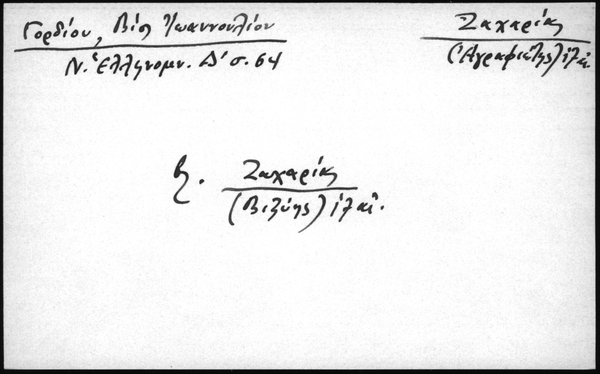 Γορδίου, Βίος Ἰωαννουλίου
Ν. Ἑλληνομν. Δ' σ. 64
Ζαχαρίας
(Ἀγραφιώτης)
Ζαχαρίας
(Βιζύης)